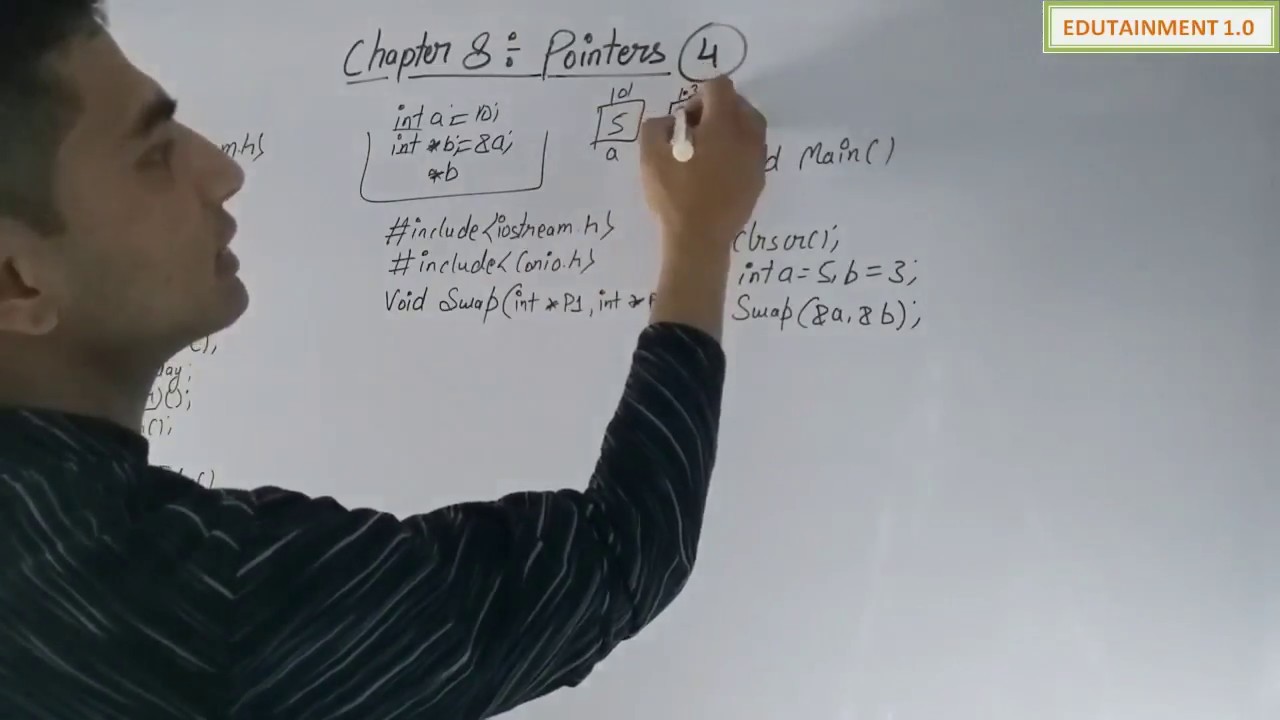 EDUTAINMENT 1.0
Chapter 8 : Pointers 4
int a = 10;
int *b; = &a;
*b
101
5
a
103
Main()
#include<iostream.h>
#include<Conio.h>
Void Swap(int *P1, int *
Clrscr();
int a = 5, b = 3;
Swap(&a, &b);